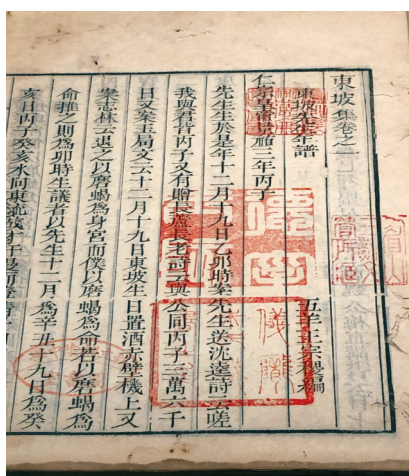 東坡集卷之
東坡先生年譜
五羊王宗稷編
仁宗皇帝景祐三年丙子
先生生於是年十二月十九日乙卯時案先生送沈逵詩云嗟
我與君皆丙子又有贈長蘆長老詩云與公同丙子三萬六千
日又案玉局文云十二月十九日東坡生日置酒赤壁磯上又
案志林云退之以磨蝎爲身宮而僕以磨蝎爲命若以磨蝎爲
命推之則爲卯時生議者以先生十二月爲辛丑十九日爲癸
亥日丙子癸亥水向東流故才
儀隴